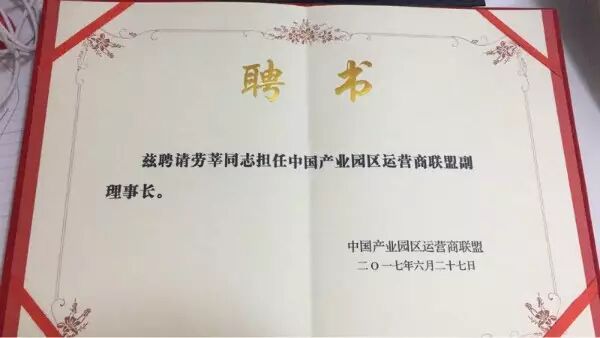 聘书
兹聘请劳莘同志担任中国产业园区运营商联盟副
理事长。
中国产业园区运营商联盟
二〇一七年六月二十七日